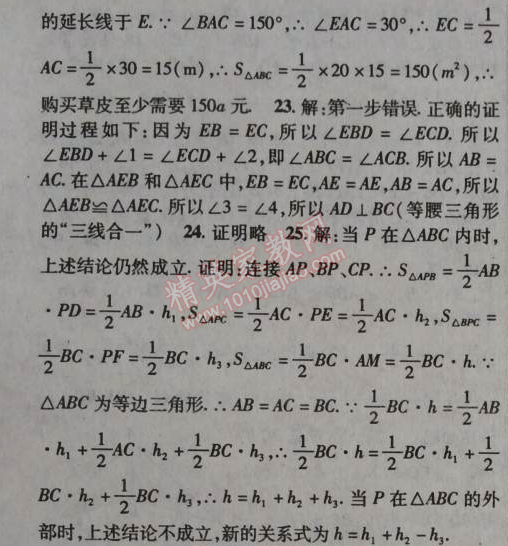 的延长线于 E. ∵ ∠BAC = 150°, ∴ ∠EAC = 30°, ∴ EC = 1/2
AC = 1/2 × 30 = 15(m), ∴ S△ABC = 1/2 × 20 × 15 = 150(m²), ∴
购买草皮至少需要 150a 元. 23. 解:第一步错误. 正确的证
明过程如下:因为 EB = EC,所以∠EBD = ∠ECD. 所以
∠EBD + ∠1 = ∠ECD + ∠2,即∠ABC = ∠ACB. 所以 AB =
AC. 在△AEB 和△AEC 中,EB = EC,AE = AE,AB = AC,所以
△AEB≌△AEC. 所以∠3 = ∠4,所以 AD⊥BC(等腰三角形
的“三线合一”) 24. 证明略 25. 解:当 P 在△ABC 内时,
上述结论仍然成立. 证明:连接 AP、BP、CP. ∴ S△APB = 1/2 AB
· PD = 1/2 AB · h₁, S△APC = 1/2 AC · PE = 1/2 AC · h₂, S△BPC =
1/2 BC · PF = 1/2 BC · h₃, S△ABC = 1/2 BC · AM = 1/2 BC · h. ∵
△ABC 为等边三角形. ∴ AB = AC = BC. ∵ 1/2 BC · h = 1/2 AB
· h₁ + 1/2 AC · h₂ + 1/2 BC · h₃, ∴ 1/2 BC · h = 1/2 BC · h₁ + 1/2
BC · h₂ + 1/2 BC · h₃, ∴ h = h₁ + h₂ + h₃. 当 P 在△ABC 的外
部时,上述结论不成立,新的关系式为 h = h₁ + h₂ - h₃.
精英家教网
www.1010jiajiao.com